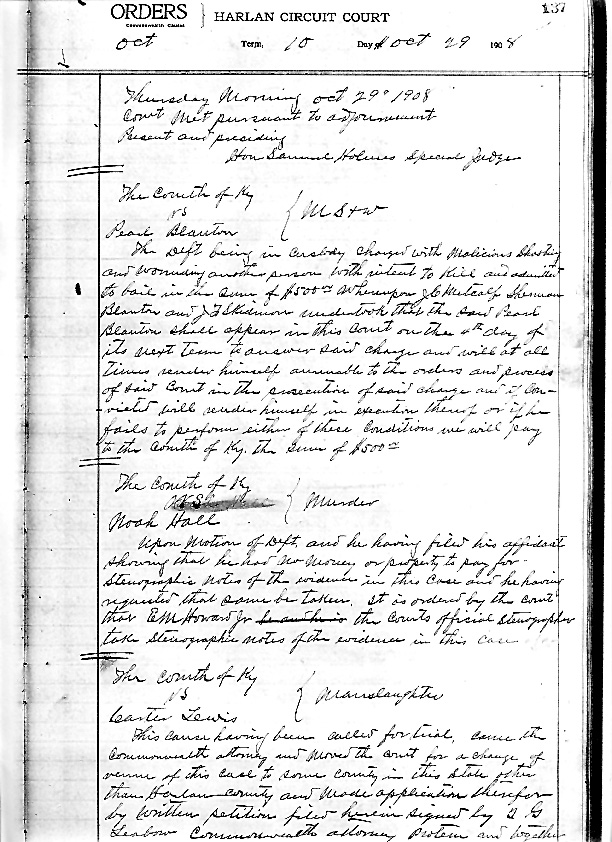 ORDERS HARLAN CIRCUIT COURT 137
Commonwealth Causes
Oct Term, 10 Day Oct 29 1908
Thursday Morning Oct 29° 1908
Court Met pursuant to adjournment
Present and presiding
Hon Samuel Holmes Special Judge
The Comlth of Ky
vs
M S & W
Pearl Blanton
The Deft being in Custody charged with Malicious Shooting
and Wounding another person with intent to Kill and admitted
to bail in the sum of $500 Whereupon J C Metcalf Sherman
Blanton and J F Skidmore undertook that the said Pearl
Blanton shall appear in this Court on the day of
its next Term to answer said charge and will at all
times render himself amenable to the orders and process
of said Court in the prosecution of said charge and if Con-
victed will render himself in execution thereof or if he
fails to perform either of these Conditions we will pay
to the Comlth of Ky. the sum of $500
The Comlth of Ky
vs
Murder
Noah Hall
Upon Motion of Deft. and he having filed his affidavit
showing that he had no Money or property to pay for
Stenographic notes of the evidence in this case and he having
requested that same be taken. It is ordered by the court
that E M Howard Jr the Courts official Stenographer
take Stenographic notes of the evidence in this case
The Comlth of Ky
vs
Manslaughter
Carter Lewis
This cause having been called for trial, came the
Commonwealth attorney and Moved the court for a change of
venue of this case to some county in this State other
than Harlan county and Made application therefor
by Written petition filed herein signed by
Commonwealth attorney and together